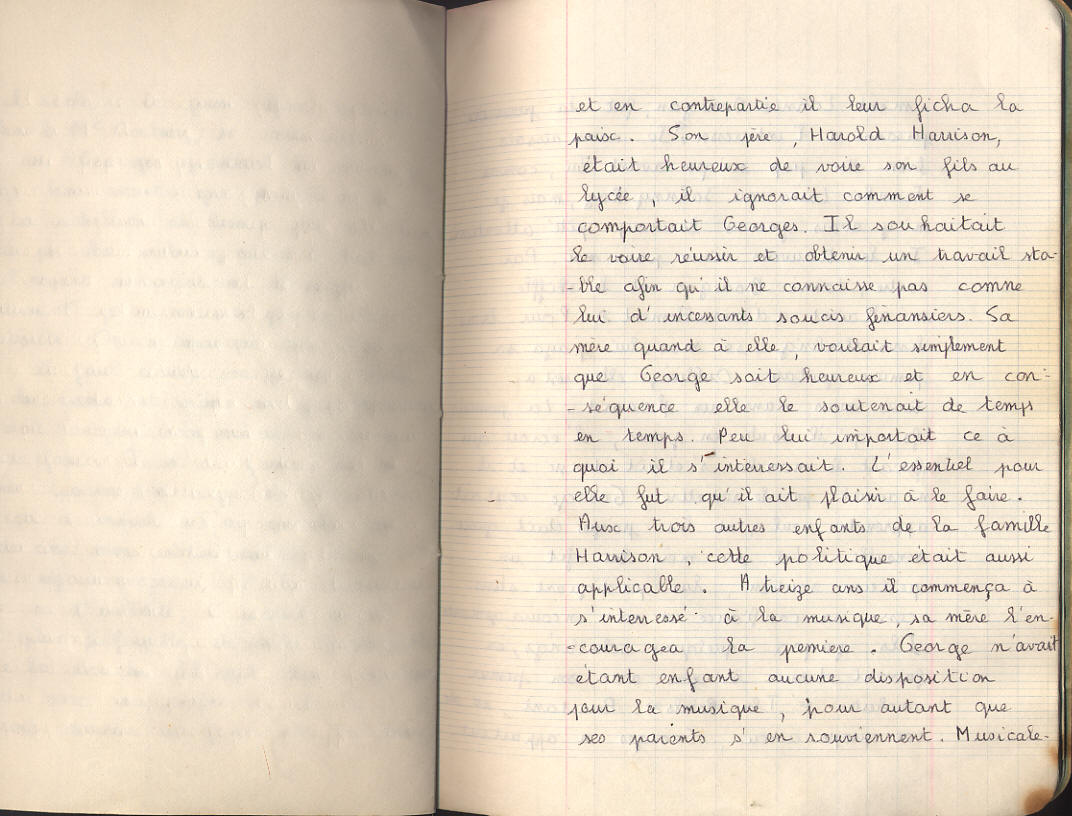 et en contrepartie il leur ficha la
paix. Son père, Harold Harrison,
était heureux de voire son fils au
lycée, il ignorait comment se
comportait Georges. Il souhaitait
le voire réussir et obtenir un travail sta-
-ble afin qu'il ne connaisse pas comme
lui d'incessants soucis finansiers. Sa
mère quand à elle, voulait simplement
que George soit heureux et en con-
-séquence elle le soutenait de temps
en temps. Peu lui importait ce à
quoi il s'interessait. L'essentiel pour
elle fut qu'il ait plaisir à le faire.
Aux trois autres enfants de la famille
Harrison, cette politique était aussi
applicable. A treize ans il commença à
s'interessé à la musique, sa mère l'en-
-couragea la première. George n'avait
étant enfant aucune disposition
pour la musique, pour autant que
ses parents s'en souviennent. Musicale-